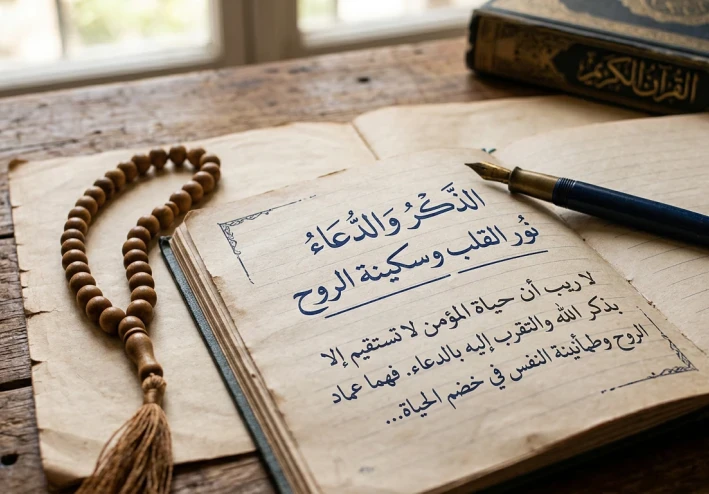 القرآن الكريم
الذَّكْرُ وَالدُّعَاءُ
نُور القلب وسكينة الروح
لا ريب أن حياة المؤمن لا تستقيم إلا
بذكر الله والتقرب إليه بالدعاء. فهما عماد
الروح وطمأنينة النفس في خضم الحياة...